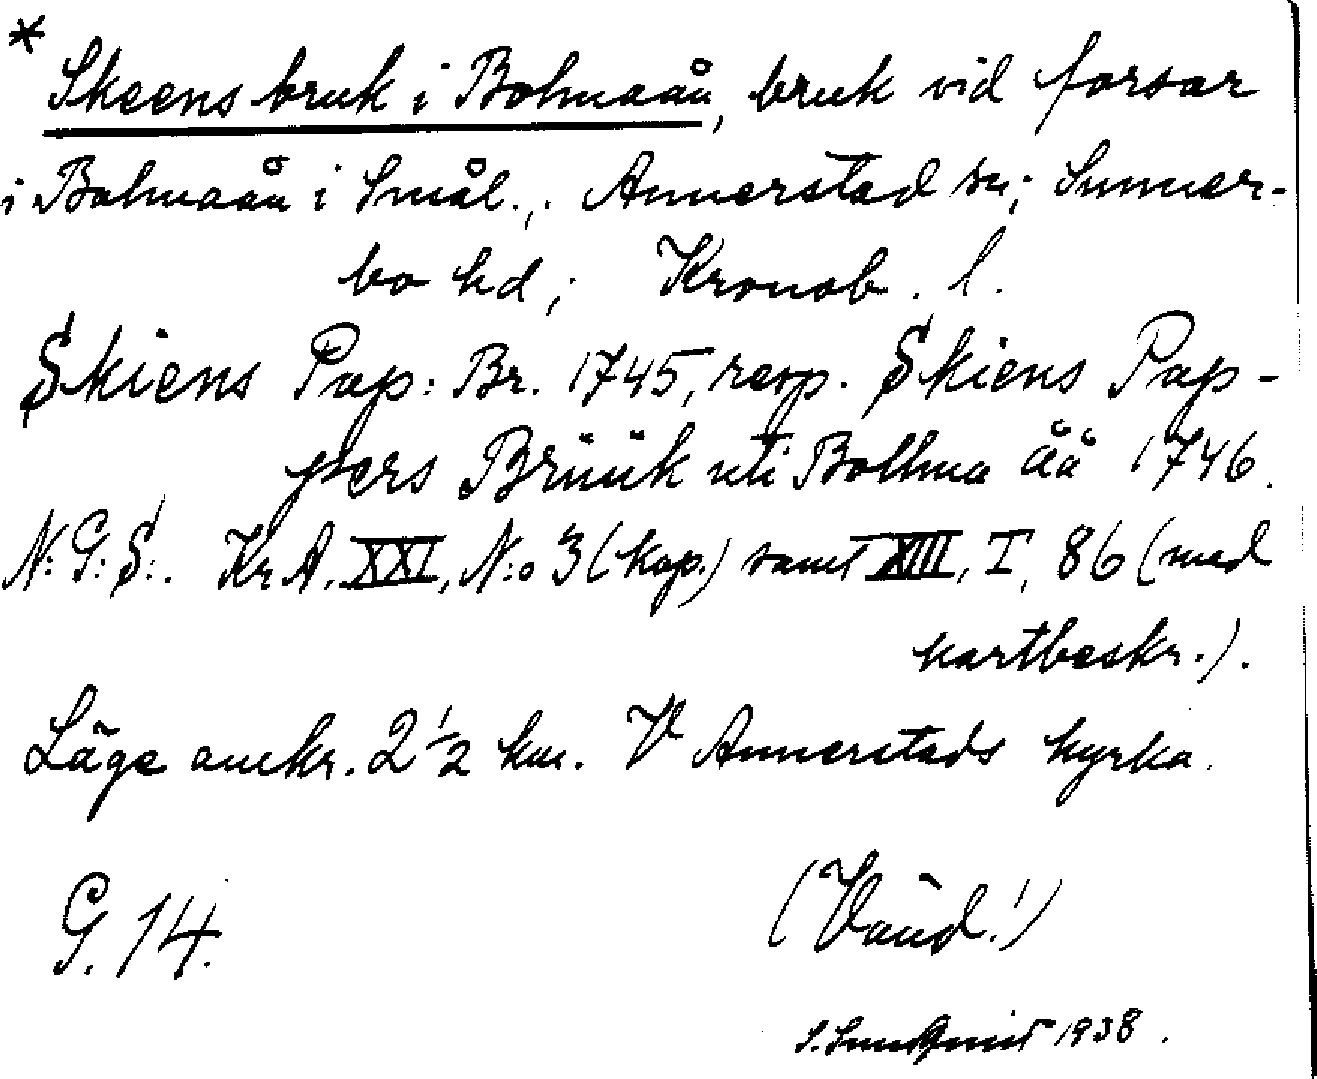 * Skeens bruk i Bolmaån, bruk vid forsar
i Bolmaån i Smål., Annerstad sn; Sunner-
bo hd; Kronob. l.
Skiens Pap: Br. 1745, resp. Skiens Pap-
pers Brüük uti Bollma åå 1746.
N:G:S:. Kr.A. XXI, N:o 3 (kop.) samt XIII, I, 86 (med
kartbeskr.).
Läge omkr. 2 1/2 km. V Annerstads kyrka.
G. 14.
(Vänd!)
S. Sundqvist 1938.